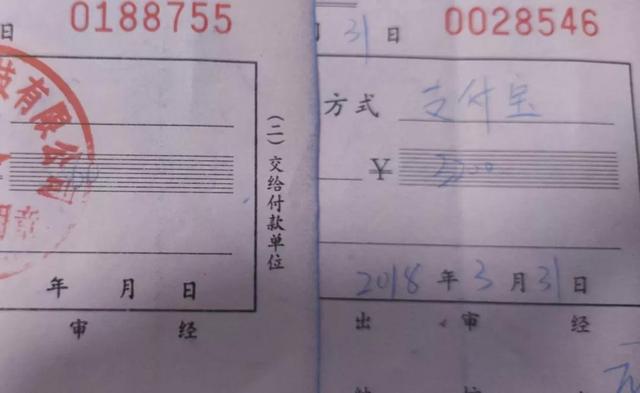 日 0188755
技有限公司
用章
(二)交给付款单位
年 月 日
审 经
月 31 日 0028546
方式 支付宝
¥ 3200
2018 年 3 月 31 日
出 审 经